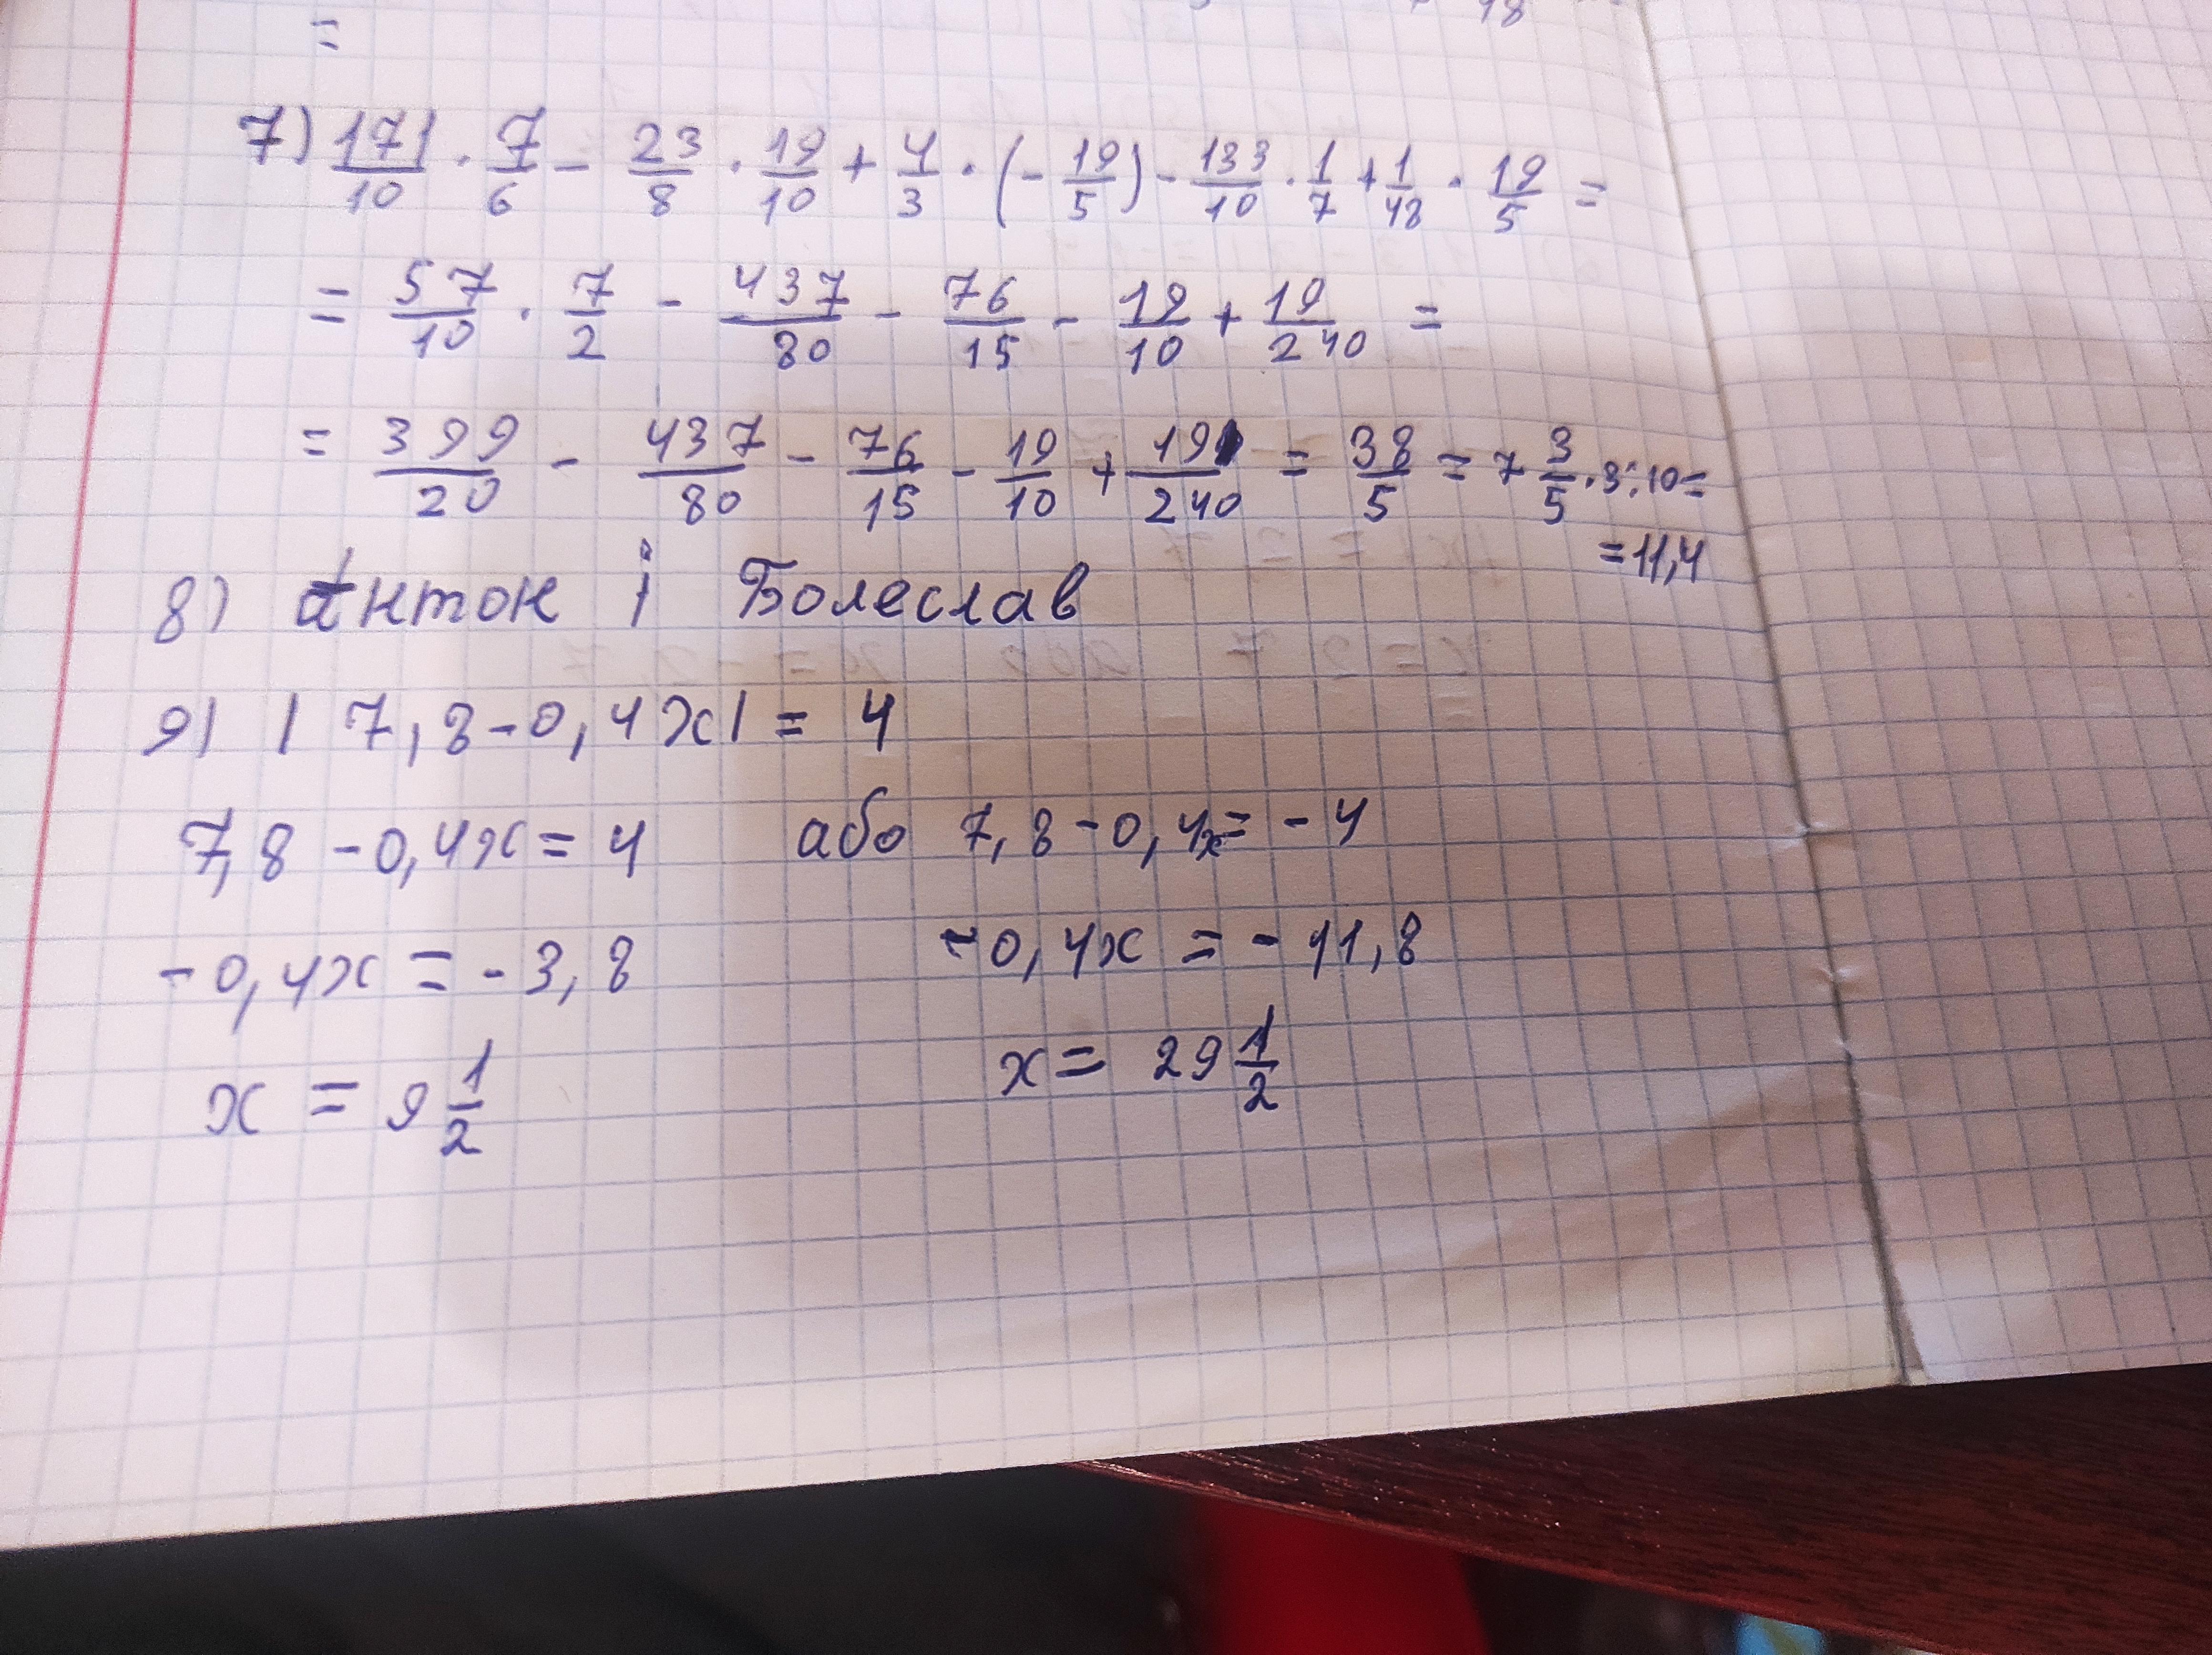 =
7) 171/10 · 7/6 - 23/8 · 19/10 + 4/3 · (- 19/5) - 133/10 · 1/7 + 1/48 · 19/5 =
= 57/10 · 7/2 - 437/80 - 76/15 - 19/10 + 19/240 =
= 399/20 - 437/80 - 76/15 - 19/10 + 19/240 = 38/5 = 7 3/5 · 3:10 =
= 11,4
8) Антон і Болеслав
9) | 7,8 - 0,4x | = 4
7,8 - 0,4x = 4 або 7,8 - 0,4x = - 4
- 0,4x = - 3,8 - 0,4x = - 11,8
x = 9 1/2 x = 29 1/2